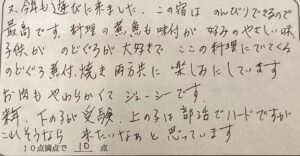 又、今年も遊びに来ました。この宿は のんびりできるので
最高です。料理の煮魚も味付が 好みのやさしい味
子供が のどぐろが大好きで ここの料理にでてくる
のどぐろ煮付、焼き 両方共に 楽しみにしています
お肉もやわらかくて ジューシーです。
下の子が受験、上の子は 部活でハードですが
これそうなら 来たいなぁと思っています
10点満点で 10 点